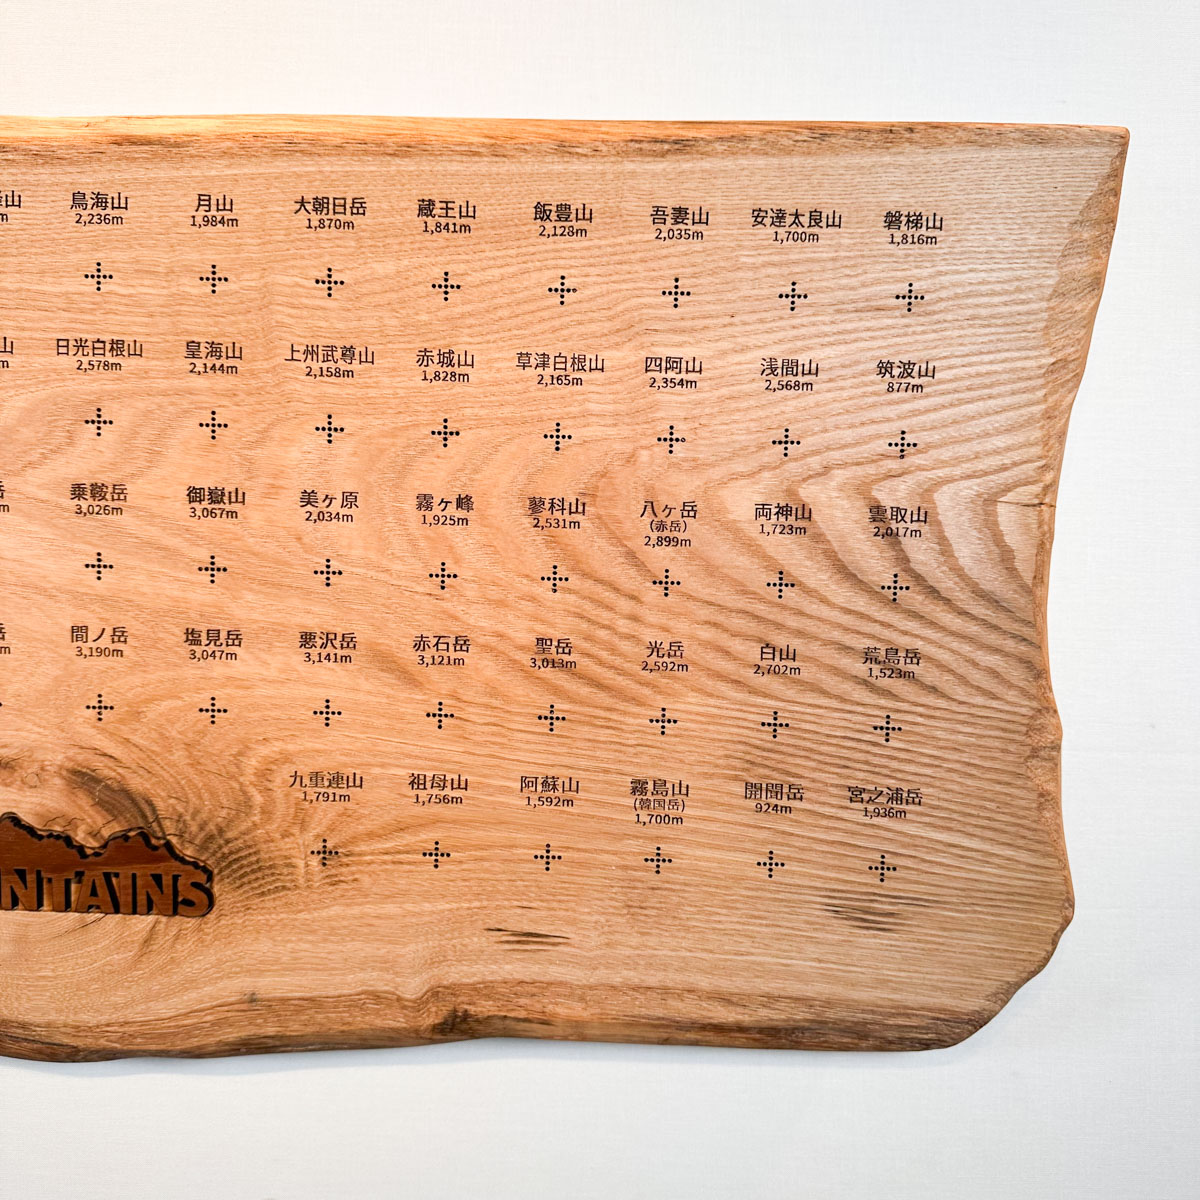 山 鳥海山 月山 大朝日岳 蔵王山 飯豊山 吾妻山 安達太良山 磐梯山
m 2,236m 1,984m 1,870m 1,841m 2,128m 2,035m 1,700m 1,816m
山 日光白根山 皇海山 上州武尊山 赤城山 草津白根山 四阿山 浅間山 筑波山
m 2,578m 2,144m 2,158m 1,828m 2,165m 2,354m 2,568m 877m
岳 乗鞍岳 御嶽山 美ヶ原 霧ヶ峰 蓼科山 八ヶ岳 両神山 雲取山
(赤岳)
m 3,026m 3,067m 2,034m 1,925m 2,531m 2,899m 1,723m 2,017m
岳 間ノ岳 塩見岳 悪沢岳 赤石岳 聖岳 光岳 白山 荒島岳
m 3,190m 3,047m 3,141m 3,121m 3,013m 2,592m 2,702m 1,523m
九重連山 祖母山 阿蘇山 霧島山 開聞岳 宮之浦岳
(韓国岳)
1,791m 1,756m 1,592m 1,700m 924m 1,936m
NTAINS